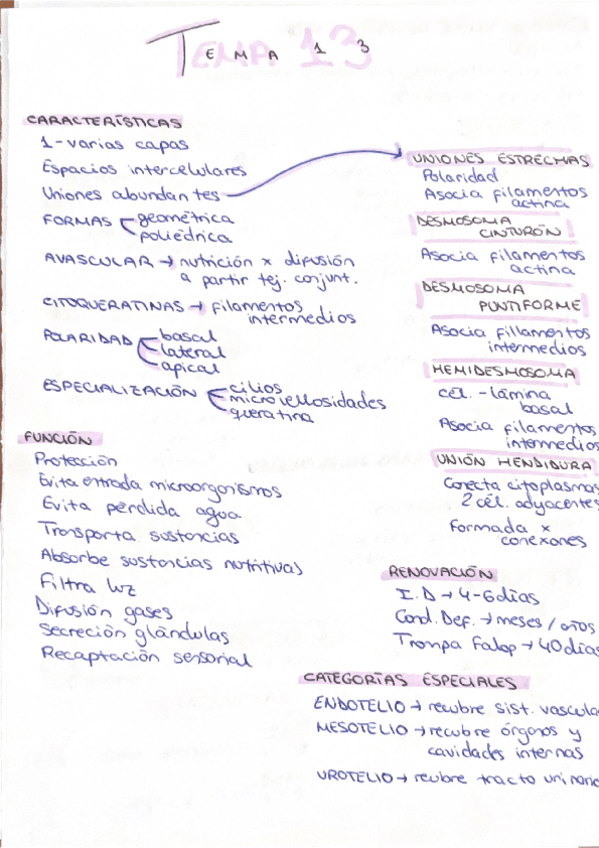 TEMA 13
CARACTERÍSTICAS
1-varias capas
Espacios intercelulares
Uniones abundantes →
FORMAS geométrica
poliédrica
AVASCULAR → nutrición x difusión
a partir tej. conjunt.
CITOQUERATINAS → filamentos
intermedios
POLARIDAD basal
lateral
apical
ESPECIALIZACIÓN cilios
microvellosidades
queratina
FUNCIÓN
Protección
Evita entrada microorganismos
Evita pérdida agua
Transporta sustancias
Absorbe sustancias nutritivas
Filtra luz
Difusión gases
Secreción glándulas
Recaptación sensorial
UNIONES ESTRECHAS
Polaridad
Asocia filamentos
actina
DESMOSOMA
CINTURÓN
Asocia filamentos
actina
DESMOSOMA
PUNTIFORME
Asocia fillamentos
intermedios
HEMIDESMOSOMA
cél. - lámina
basal
Asocia filamentos
intermedios
UNIÓN HENDIDURA
Conecta citoplasmas
2 cél. adyacentes
Formada x
conexones
RENOVACIÓN
I.D → 4-6 días
Cond. Def. → meses / años
Trompa Falop → 40 días
CATEGORÍAS ESPECIALES
ENDOTELIO → recubre sist. vascula
MESOTELIO → recubre órganos y
cavidades internas
UROTELIO → recubre tracto urinario